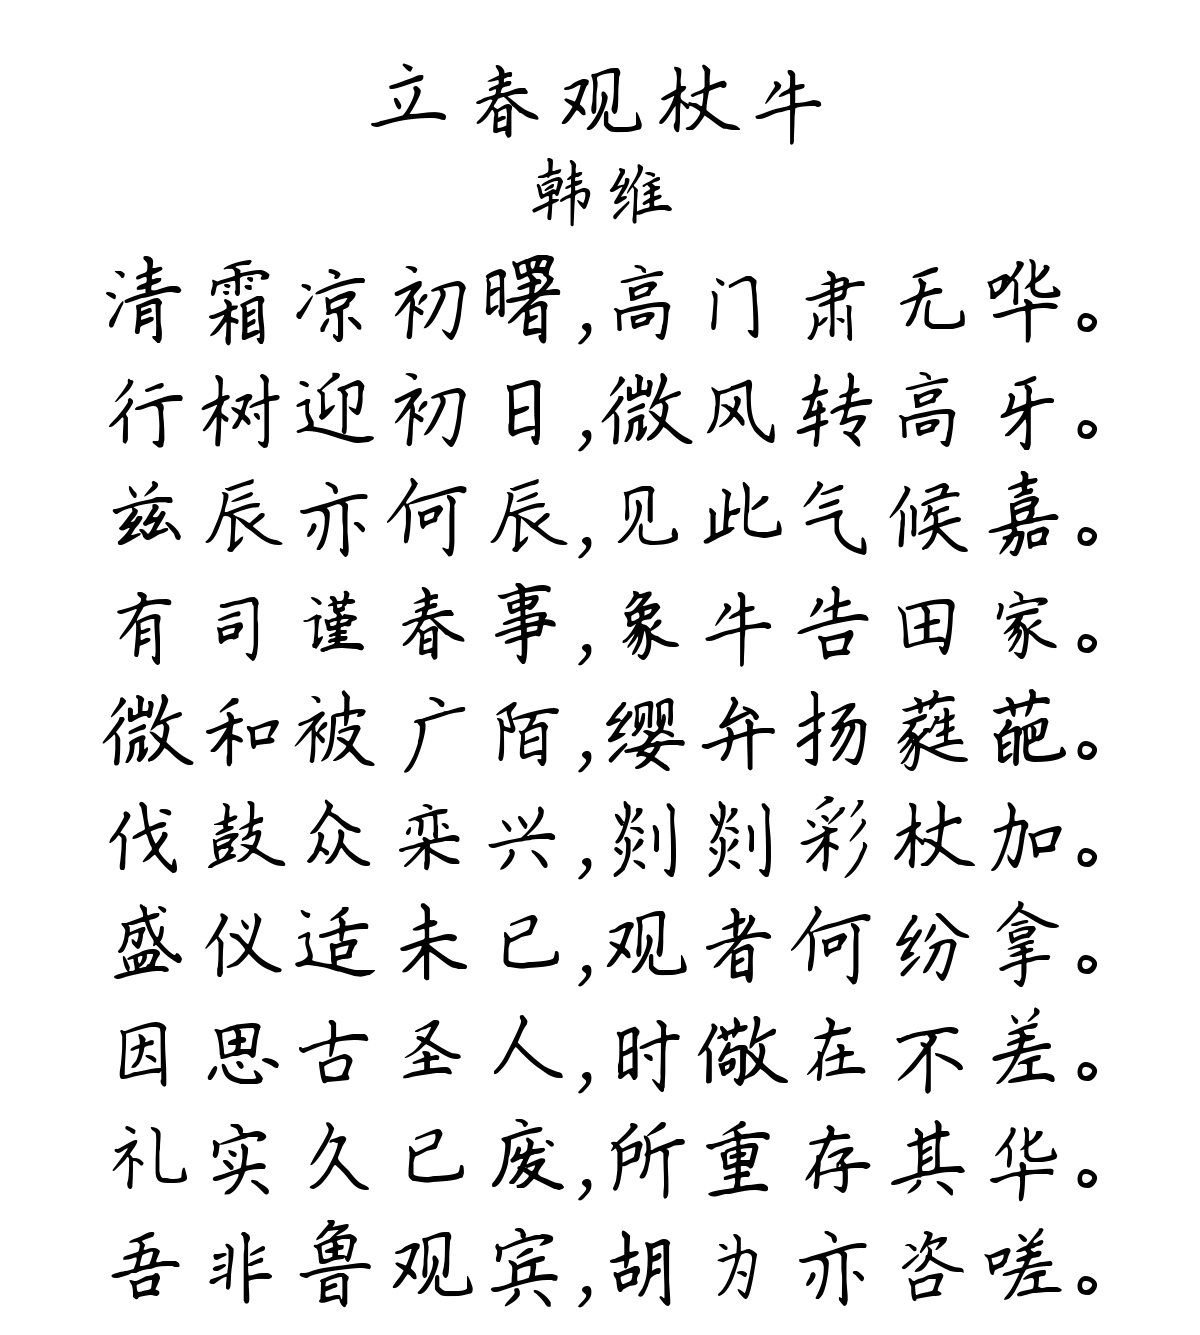 立春观杖牛
韩维
清霜凉初曙,高门肃无哗。
行树迎初日,微风转高牙。
兹辰亦何辰,见此气候嘉。
有司谨春事,象牛告田家。
微和被广陌,缨弁扬蕤葩。
伐鼓众栾兴,剡剡彩杖加。
盛仪适未已,观者何纷拿。
因思古圣人,时儆在不差。
礼实久已废,所重存其华。
吾非鲁观宾,胡为亦咨嗟。